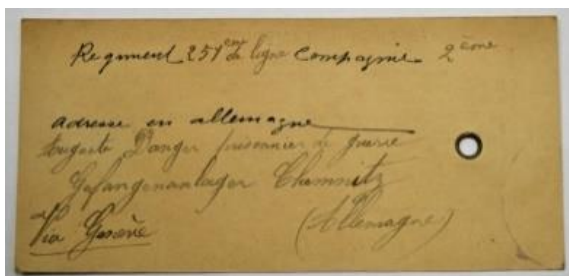 Regiment 251eme de ligne Compagnie 2ème
adresse en allemagne
Auguste Danger prisonnier de guerre
Gefangenanlager Chemnitz
Via Genève (Allemagne)